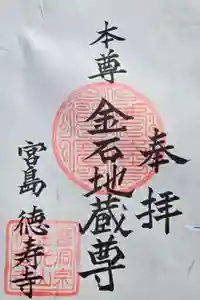 奉拝
本尊
金石地蔵尊
宮島 徳寿寺